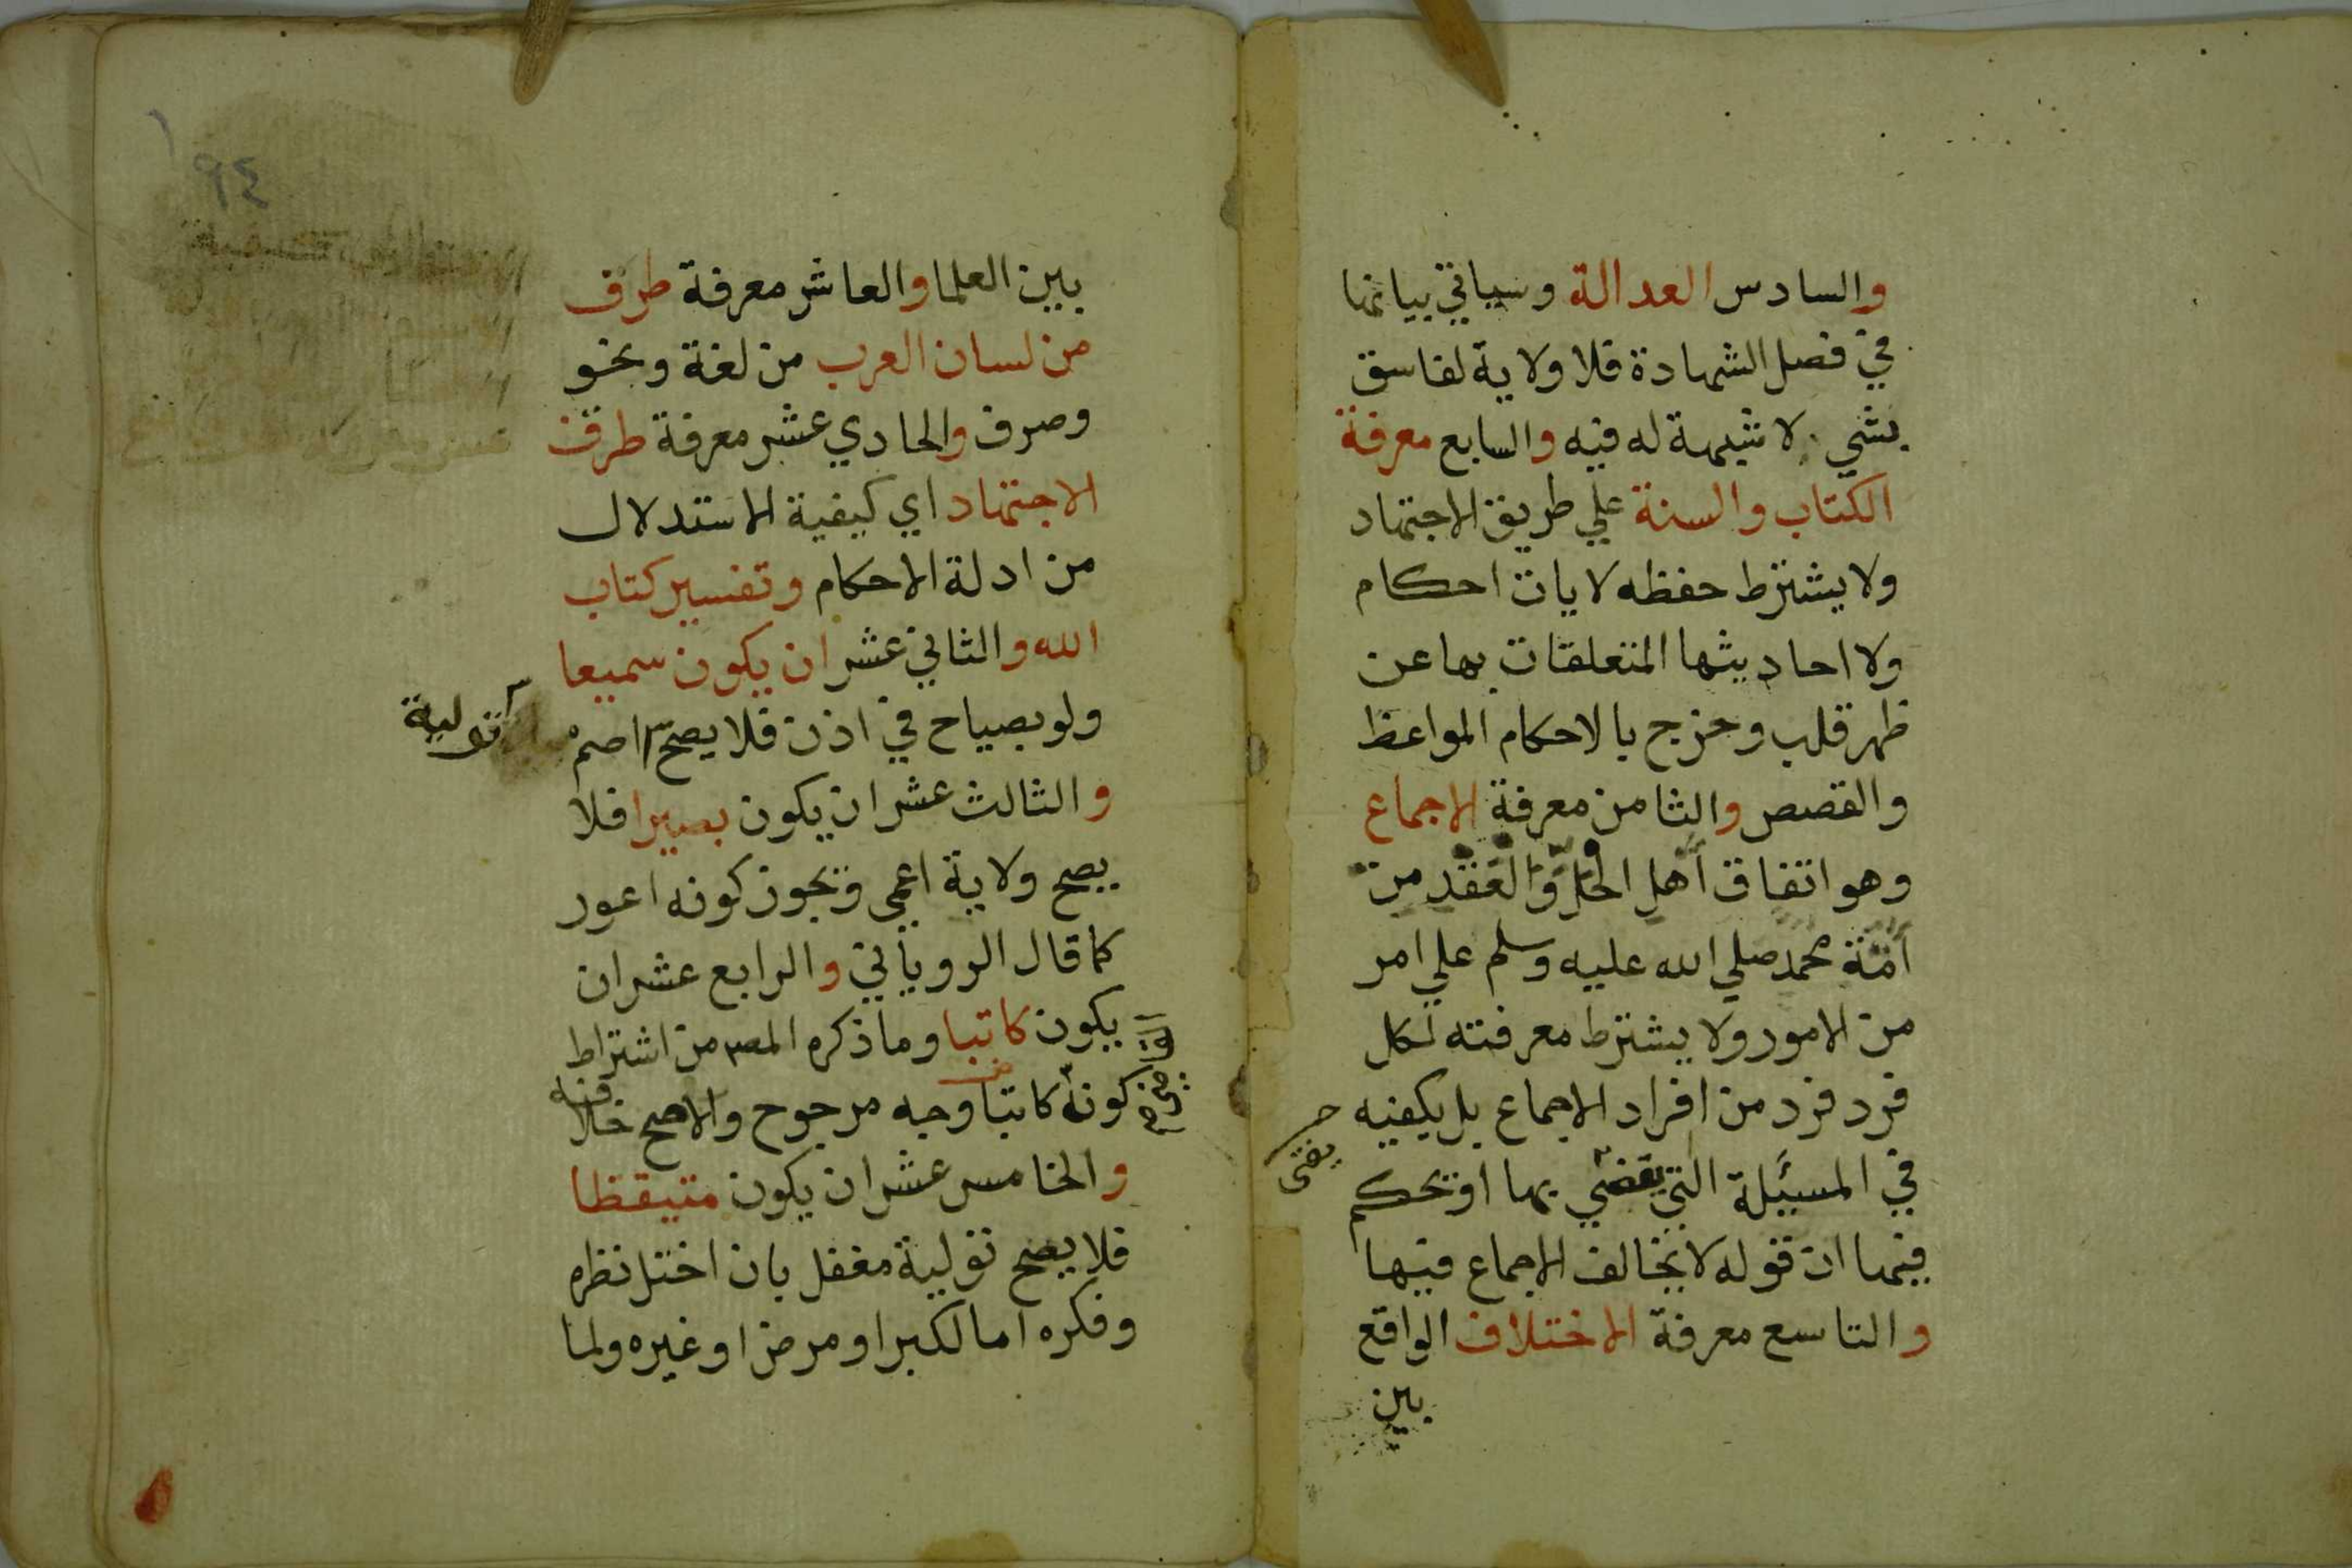 والسادس العدالة وسياتي بيانها
في فصل الشهادة فلا ولاية لفاسق
بشي لا شبهة له فيه والسابع معرفة
الكتاب والسنة علي طريق الاجتهاد
ولا يشترط حفظه لايات احكام
ولا احاديثها المتعلقات بها عن
ظهر قلب وخرج بالاحكام المواعظ
والقصص والثامن معرفة الاجماع
وهو اتفاق اهل الحل والعقد من
امة محمد صلي الله عليه وسلم علي امر
من الامور ولا يشترط معرفته لكل
فرد فرد من افراد الاجماع بل يكفيه
في المسيلة التي يقضي بها او يحكم
يفتى
فيها ان قوله لا يخالف الاجماع فيها
والتاسع معرفة الاختلاف الواقع
بين
٩٤
بين العلما والعاشر معرفة طرف
من لسان العرب من لغة ونحو
وصرف والحادي عشر معرفة طرف
الاجتهاد اي كيفية الاستدلال
من ادلة الاحكام وتفسير كتاب
الله والثاني عشر ان يكون سميعا
ولو بصياح في اذن فلا يصح اصم
تولية
والثالث عشر ان يكون بصيرا فلا
يصح ولاية اعمي ويجوز كونه اعور
كما قال الروياني والرابع عشر ان
يكون كاتبا وما ذكره المص من اشتراط
كونه كاتبا وجه مرجوح والاصح خلافه
والخامس عشر ان يكون متيقظا
فلا يصح تولية مغفل بان اختل نظره
وفكره اما لكبر او مرض او غيره ولما